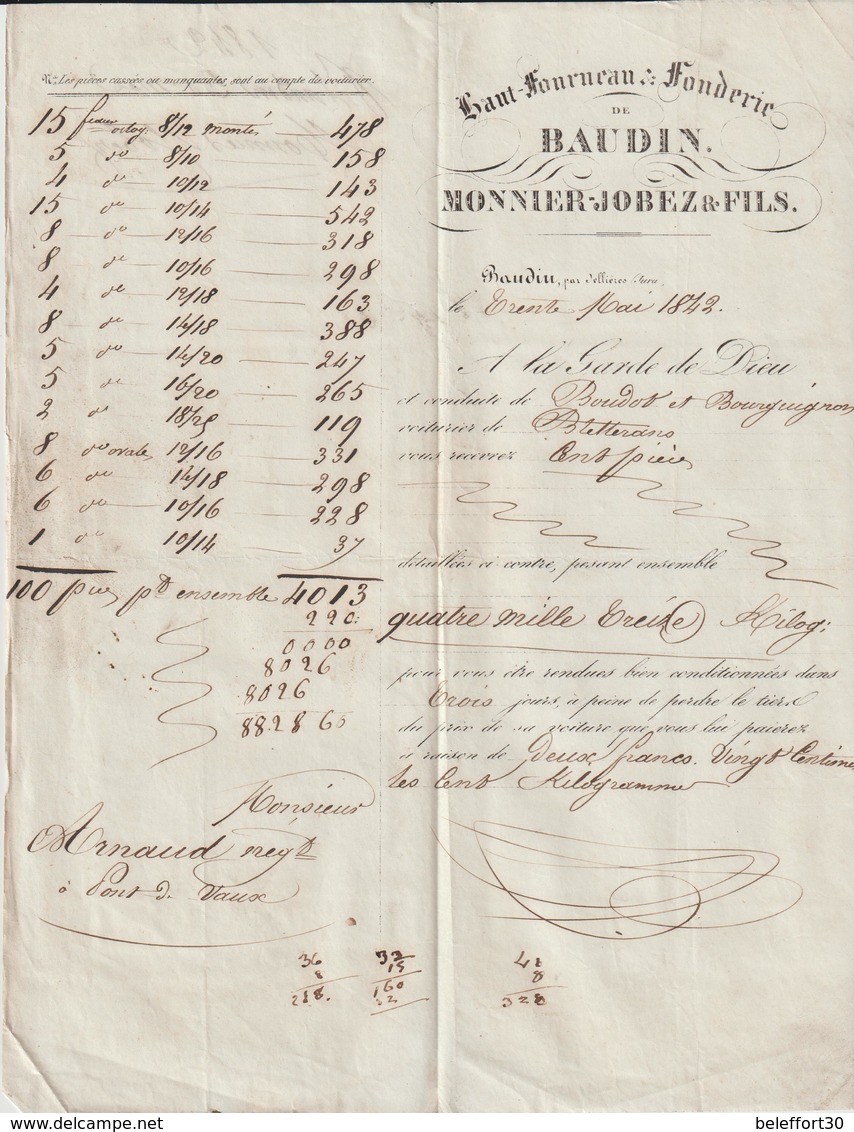 Nta Les pièces cassées ou manquantes, sont au compte du voiturier.
15 octog. 8/12 montés — 478
5 do — 8/10 158
4 do — 10/12 143
15 do — 10/14 — 542
8 do — 12/16 — 318
8 do — 10/16 — 298
4 do — 12/18 — 163
8 do — 14/18 — 388
5 do — 14/20 — 247
5 do — 16/20 — 265
2 do — 18/25 — 119
8 do ovales 12/16 — 331
6 do — 14/18 — 298
6 do — 10/16 — 228
1 do — 10/14 — 37
100 pces pt ensemble 4013
220:
0000
8026
8026
8828 60
Monsieur
Arnaud negt
à Pont de Vaux
Haut-Fourneau & Fonderie
DE
BAUDIN.
MONNIER-JOBEZ & FILS.
Baudin, par Sellières (Jura)
le Trente Mai 1842.
A la Garde de Dieu
et conduite de Boudot et Bourguignon
voiturier de Bletterans
vous recevrez Cent pièces
détaillées ci contre, pesant ensemble
quatre mille treize Kilog:
pour vous être rendues bien conditionnées dans
Trois jours, à peine de perdre le tiers
du prix de sa voiture que vous lui paierez
à raison de Deux francs Vingt Centimes
les Cent Kilogramme
36 32 41
8 15 8
288. 160 328
32
delcampe.net
beleffort30